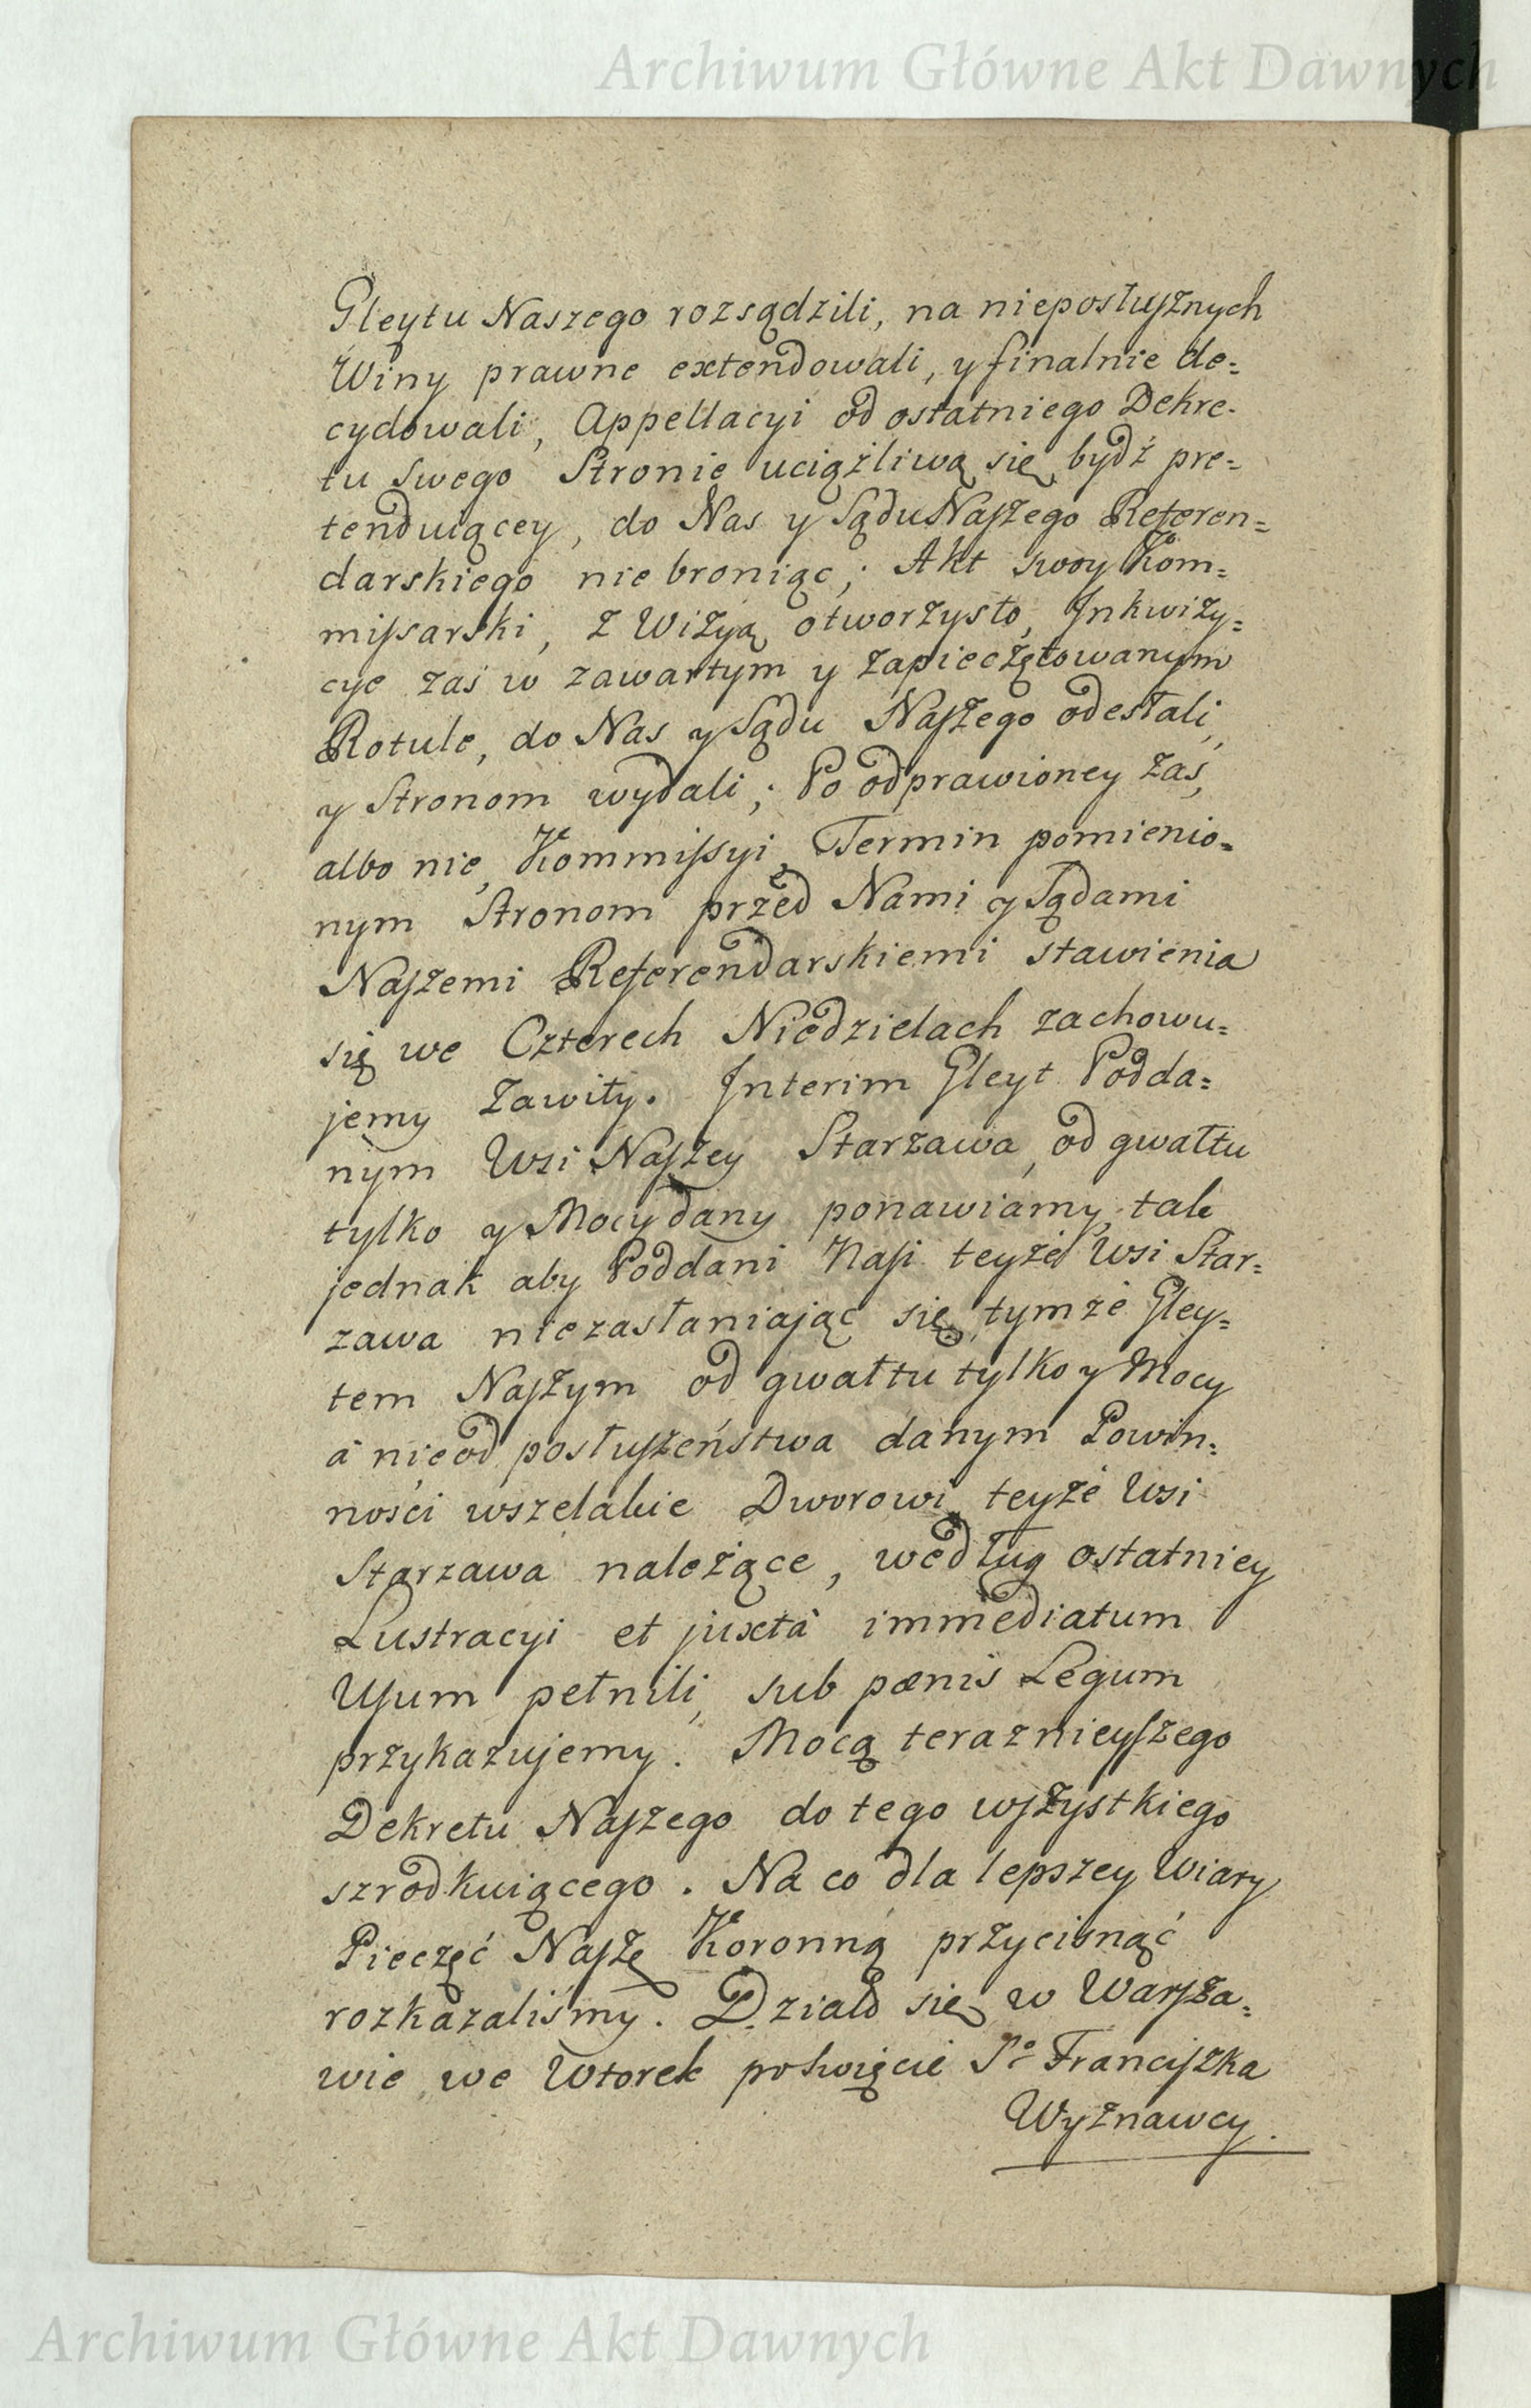 Archiwum Główne Akt Dawnych
Gleytu Naszego rozsądzili, na nieposłusznych
Winy prawne extendowali, y finalnie de=
cydowali, Appellacyi od ostatniego Dekre-
tu Swego Stronie uciążliwą się bydź pre=
tenduiącey, do Nas y Sądu Naszego Referen=
darskiego nie broniąc; Akt swoy Kom=
missarski, z Wizyą otworzysto, Inkwizy=
cye zaś w zawartym y zapieczętowanym
Rotule, do Nas y Sądu Naszego odesłali,
y Stronom wydali; Po odprawioney zaś,
albo nie, Kommissyi, Termin pomienio=
nym Stronom przed Nami y Sądami
Naszemi Referendarskiemi stawienia
się we Czterech Niedzielach zachowu=
jemy Zawity. Interim Gleyt Podda=
nym Wsi Naszey Starzawa, od gwałtu
tylko y Mocy dany ponawiamy, tak
jednak aby Poddani Nasi teyże Wsi Star=
zawa niezasłaniając się tymże Gley=
tem Naszym od gwałtu tylko y Mocy
á nie od posłuszeństwa danym Powin=
ności wszelakie Dworowi teyże Wsi
Starzawa należące, według ostatniey
Lustracyi et juxtà immediatum
Usum pełnili, sub pœnis Legum
przykazujemy. Mocą teraznieyszego
Dekretu Naszego do tego wszystkiego
szrodkuiącego. Na co dla lepszey Wiary
Pieczęć Naszę Koronną przycisnąć
rozkazaliśmy. Działo się w Warsza=
wie we Wtorek po Swięcie So Franciszka
Wyznawcy.
Archiwum Główne Akt Dawnych